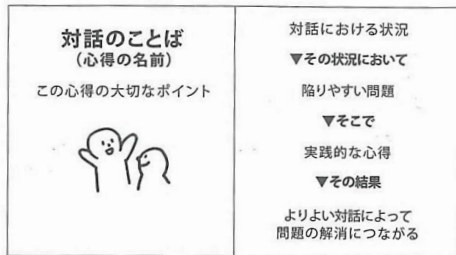 対話のことば
（心得の名前）
この心得の大切なポイント
対話における状況
▼その状況において
陥りやすい問題
▼そこで
実践的な心得
▼その結果
よりよい対話によって
問題の解消につながる